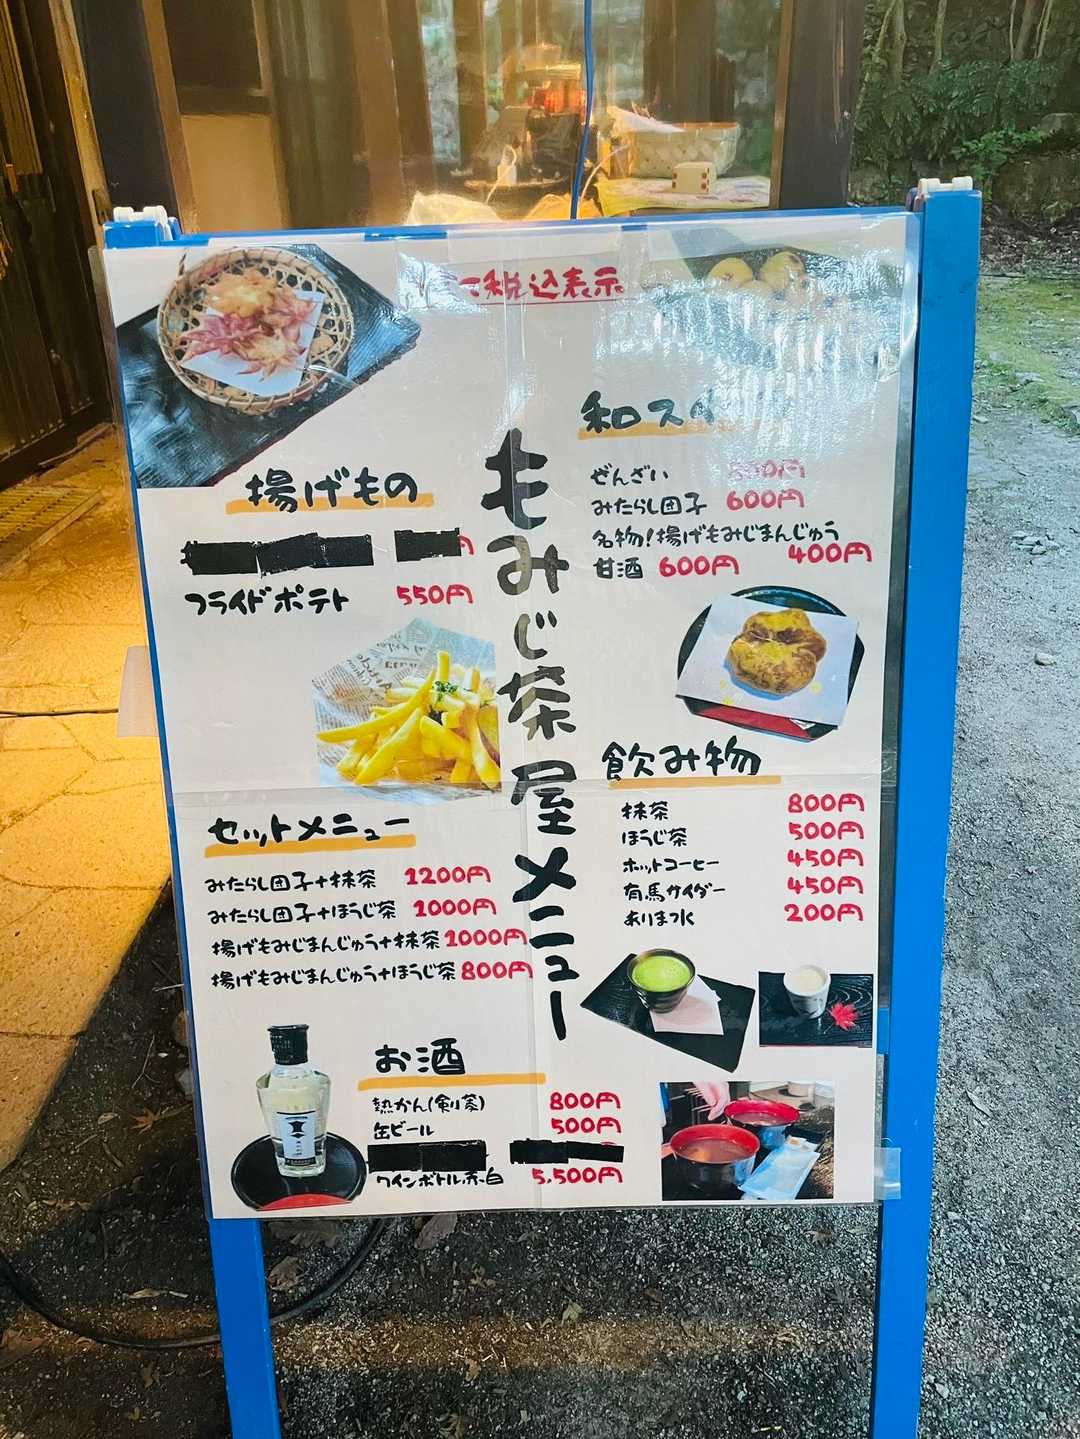 税込表示
もみじ茶屋メニュー
揚げもの
フライドポテト 550円
セットメニュー
みたらし団子+抹茶 1200円
みたらし団子+ほうじ茶 1000円
揚げもみじまんじゅう+抹茶 1000円
揚げもみじまんじゅう+ほうじ茶 800円
お酒
熱かん(剣菱) 800円
缶ビール 500円
ワインボトル赤・白 5,500円
和ス
ぜんざい
みたらし団子 600円
名物!揚げもみじまんじゅう 400円
甘酒 600円
飲み物
抹茶 800円
ほうじ茶 500円
ホットコーヒー 450円
有馬サイダー 450円
ありま水 200円